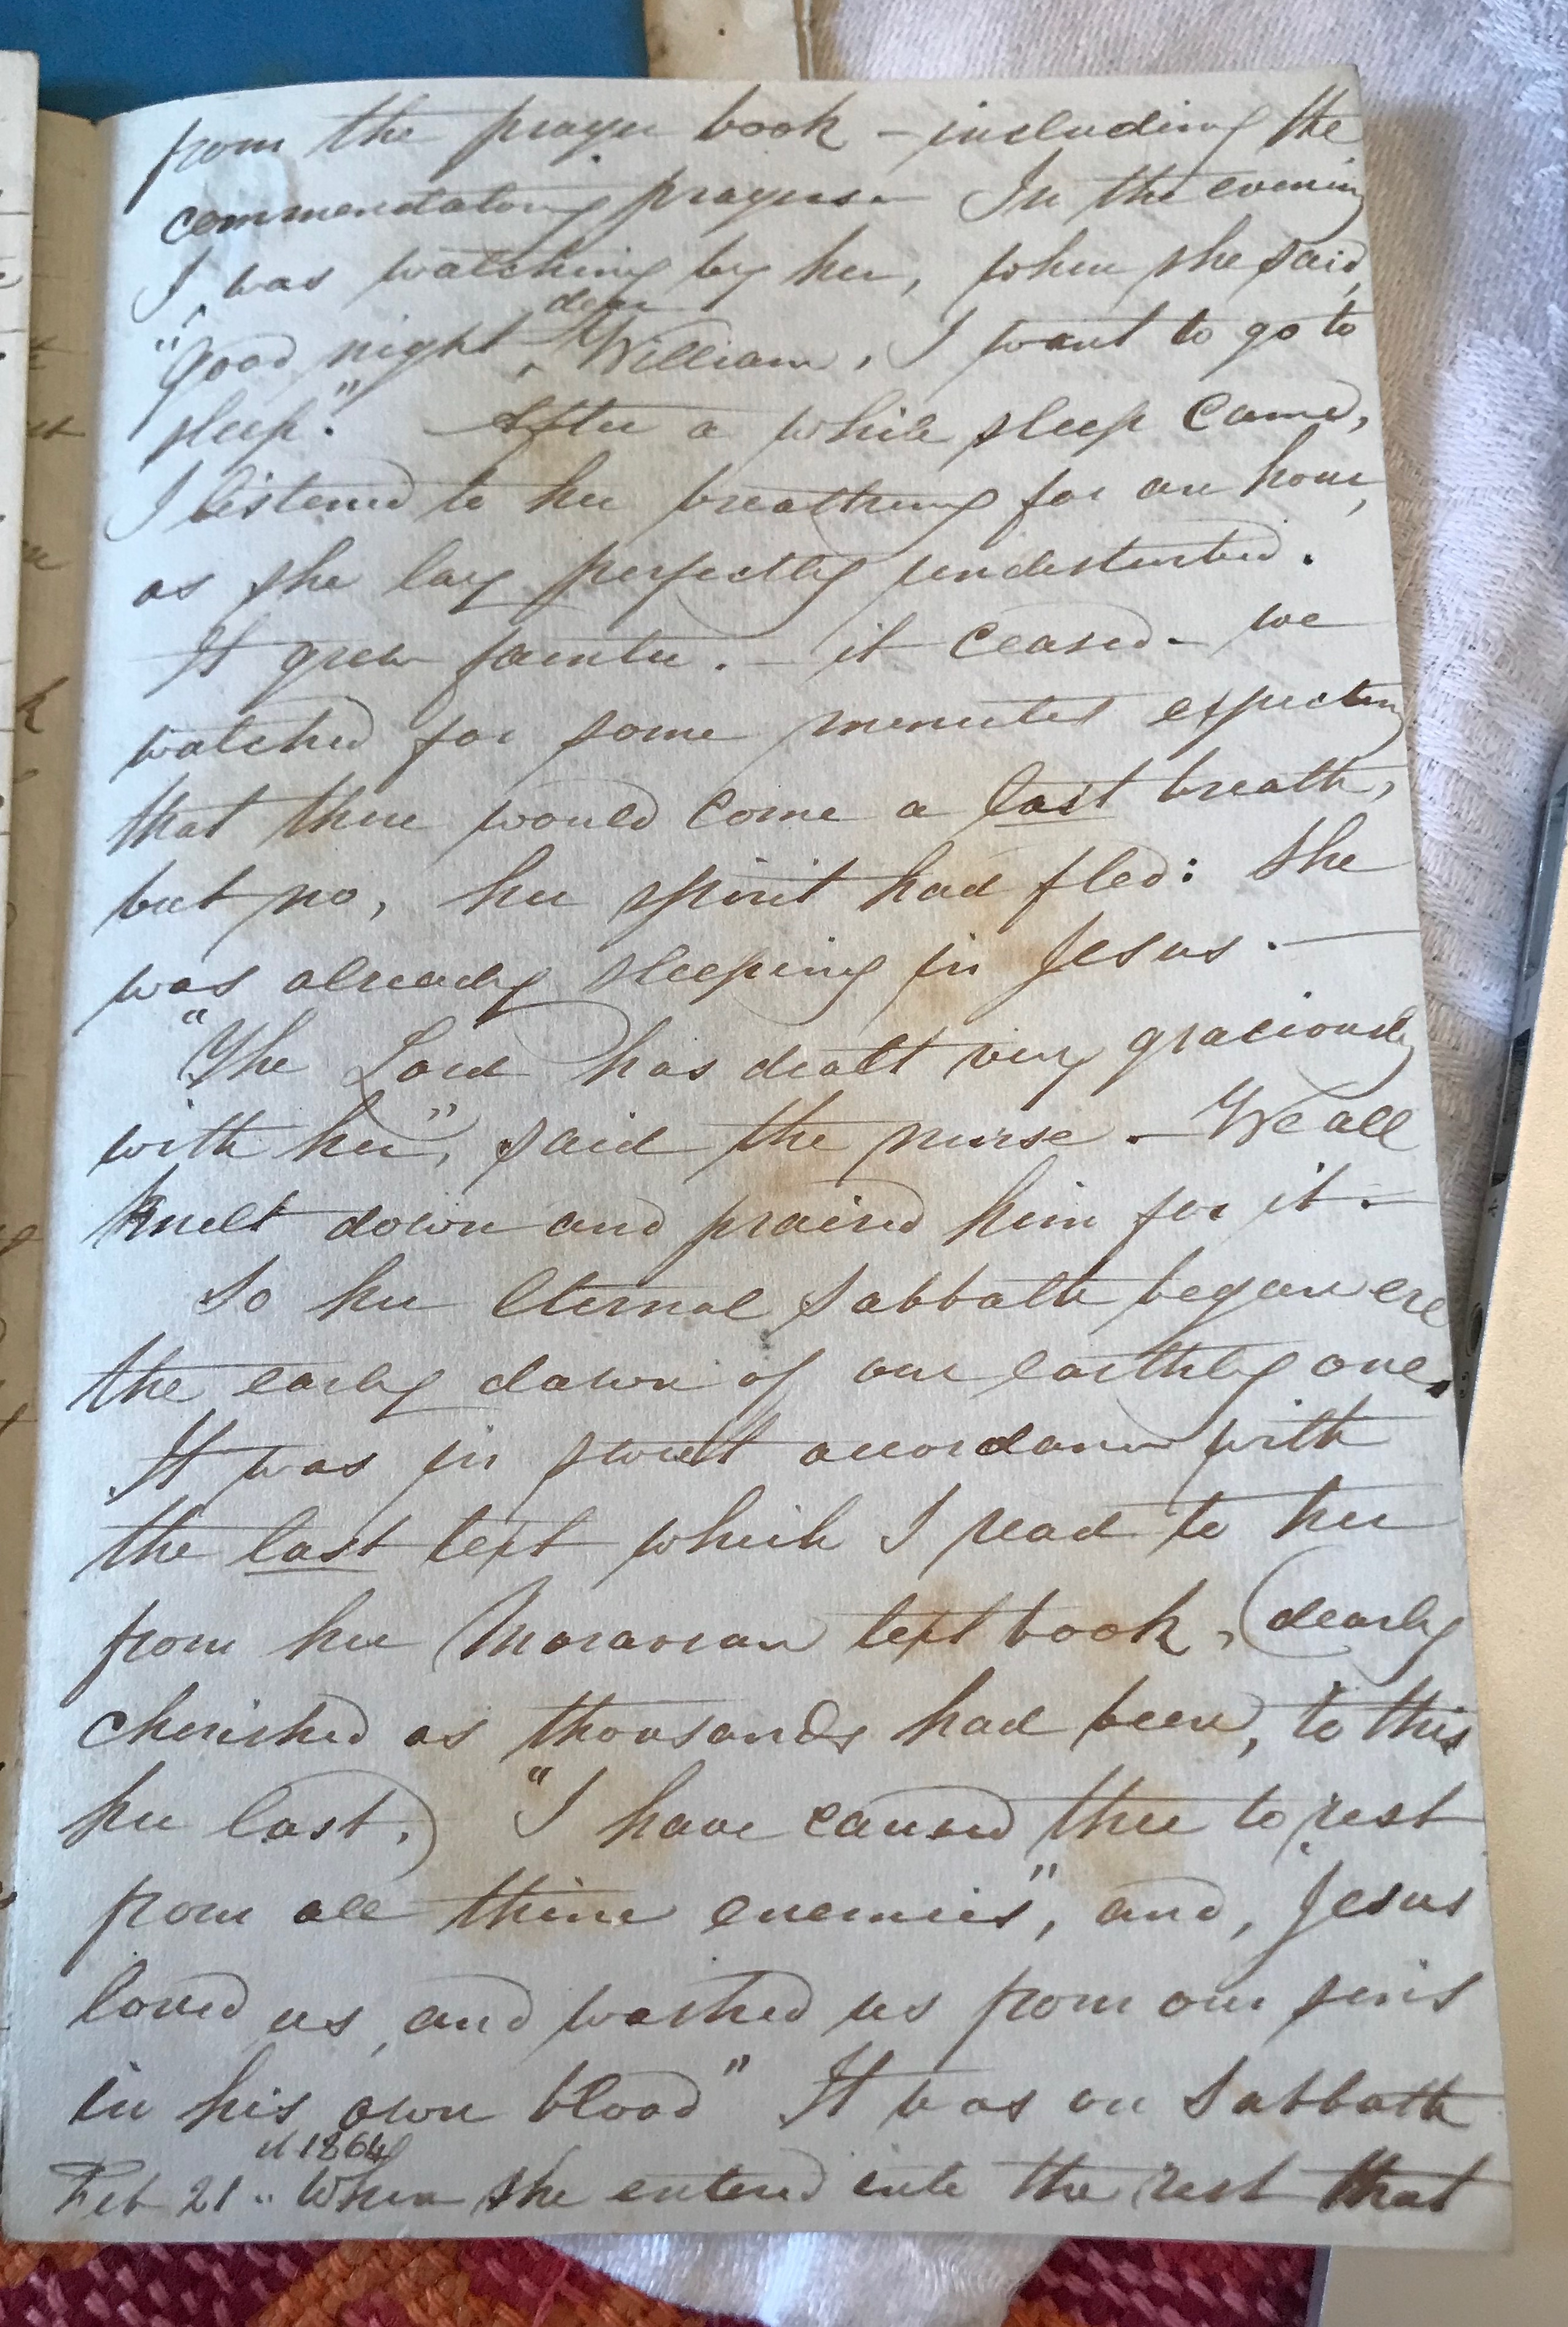 from the prayer book - including the
commendatory prayers - In the evening
I was watching by her, when she said,
dear
"Good night ^ William, I want to go to
sleep." After a while sleep came,
I listened to her breathing for an hour,
as she lay perfectly undisturbed.
It grew fainter. - it ceased - we
watched for some minutes expecting
that there would come a last breath,
but no, her spirit had fled: she
was already sleeping in Jesus. -
"The Lord has dealt very graciously
with her", said the nurse. - We all
knelt down and praised him for it. -
So her eternal Sabbath began ere
the early dawn of our earthly one.
It was in sweet accordance with
the last text which I read to her
from her Moravian text book, (dearly
cherished as thousands had been, to this
her last.) "I have caused thee to rest
from all thine enemies", and, "Jesus
loved us, and washed us from our sins
in his own blood" It was on Sabbath
1864
Feb 21 .. when she entered into the rest that